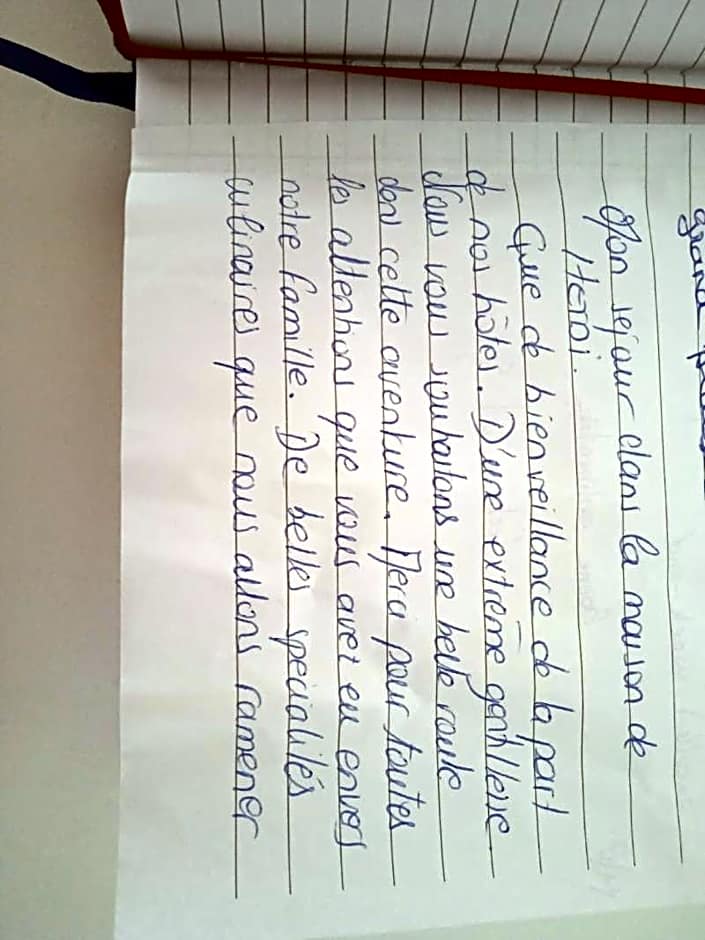 Mon sejour dans la maison de
Heroi.
Que de bienveillance de la part
de nos hôtes. D'une extrême gentillesse
Nous vous souhaitons une belle route
dans cette aventure. Merci pour toutes
les attentions que vous avez eu envers
notre famille. De belles spécialités
culinaires que nous allons ramener